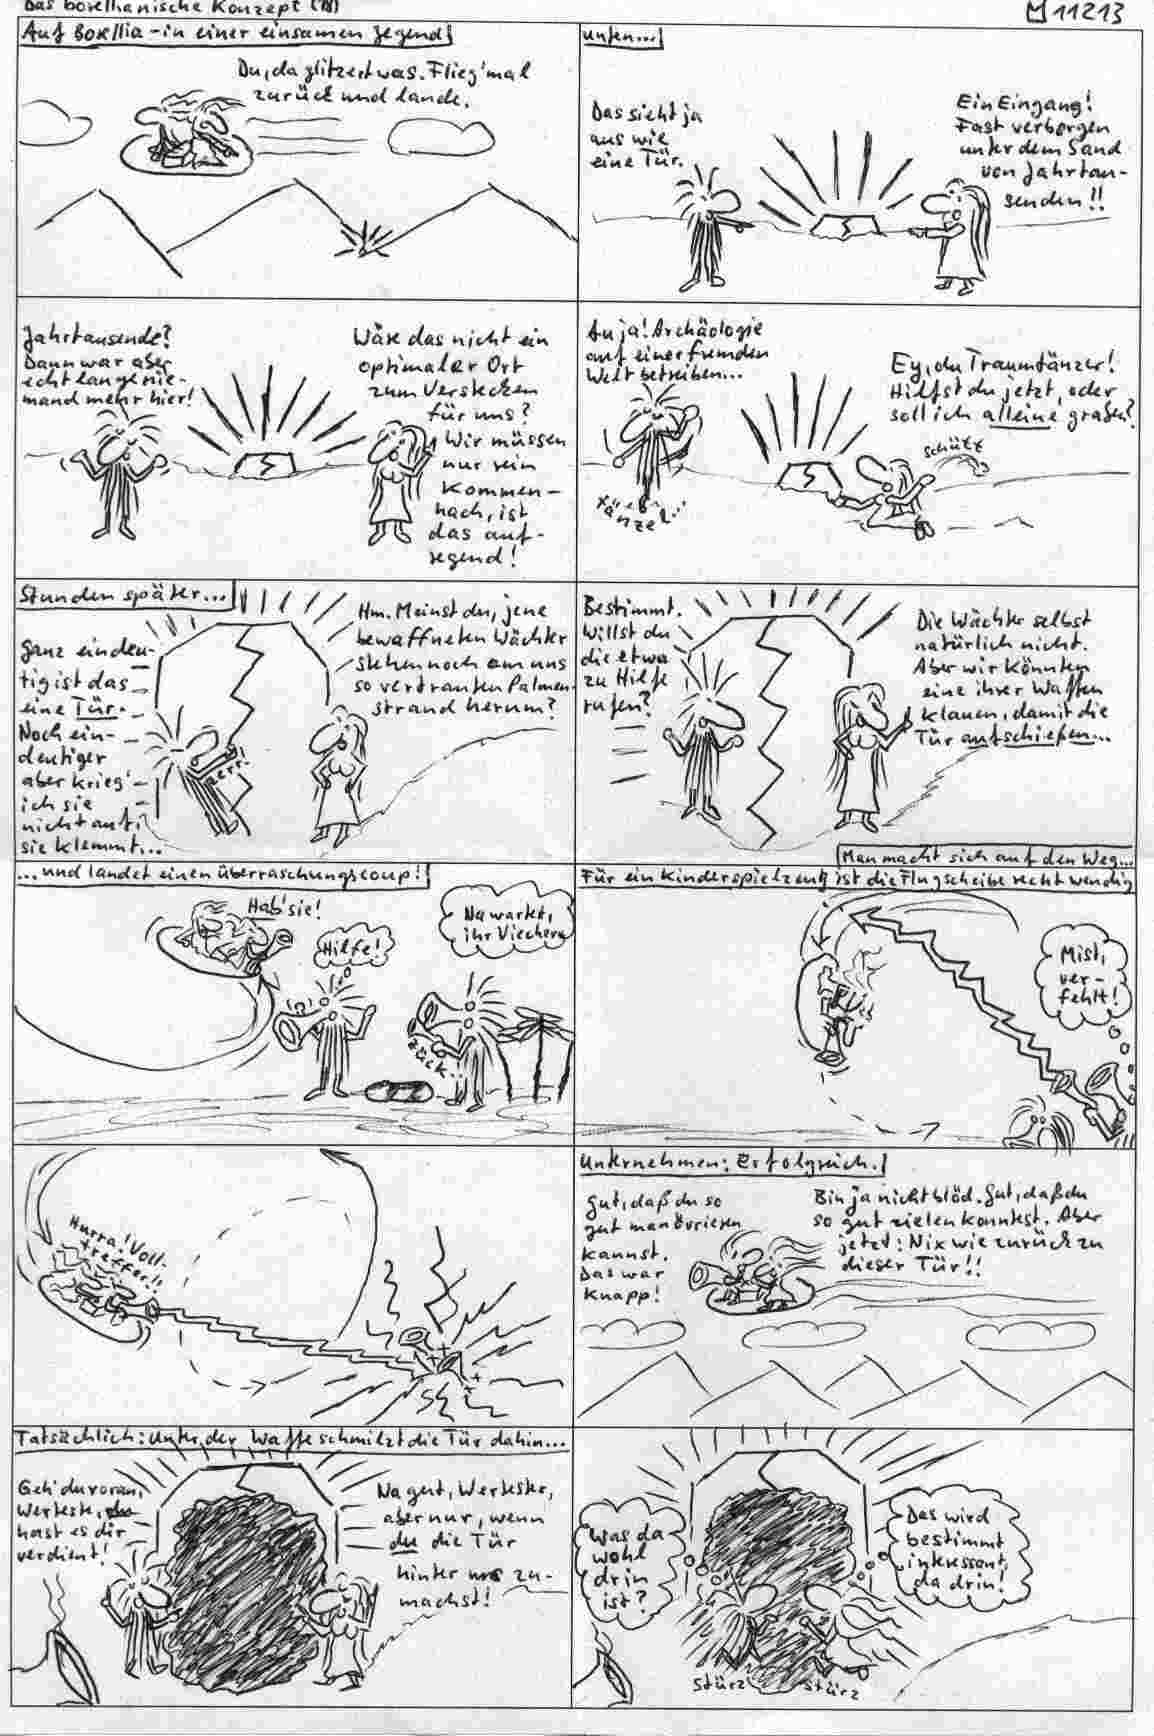 Das boxellianische Konzept (18)
M 11213
Auf Boxellia - in einer einsamen Gegend
Du, da glitzert was. Flieg' mal
zurück und lande.
unten...
Das sieht ja
aus wie
eine Tür.
Ein Eingang!
Fast verborgen
unter dem Sand
von Jahrtau-
senden!!
Jahrtausende?
Dann war aber
echt lange nie-
mand mehr hier!
Wäre das nicht ein
optimaler Ort
zum Verstecken
für uns?
Wir müssen
nur rein
kommen-
hach, ist
das auf-
regend!
Au ja! Archäologie
auf einer fremden
Welt betreiben...
tänzel...
Ey, du Traumtänzer!
Hilfst du jetzt, oder
soll ich alleine graben?
Stunden später...
ganz eindeu-
tig ist das
eine Tür.
Noch ein-
deutiger
aber krieg'
ich sie
nicht auf;
sie klemmt...
zerr!
Hm. Meinst du, jene
bewaffneten Wächter
stehen noch am uns
so vertrauten Palmen-
strand herum?
Bestimmt.
Willst du
die etwa
zu Hilfe
rufen?
Die Wächter selbst
natürlich nicht.
Aber wir könnten
eine ihrer Waffen
klauen, damit die
Tür aufschießen...
Man macht sich auf den Weg...
...und landet einen Überraschungscoup!
Hab' sie!
Hilfe!
Na wartet,
ihr Viecher
zück...
Für ein Kinderspielzeug ist die Flugscheibe recht wendig
Mist,
ver-
fehlt!
Hurra! Voll-
treffer!!
Unternehmen: Erfolgreich.
Gut, daß du so
gut manövrieren
kannst.
Das war
knapp!
Bin ja nicht blöd. Gut, daß du
so gut zielen konntest. Aber
jetzt: Nix wie zurück zu
dieser Tür!!
Tatsächlich: Unter der Waffe schmilzt die Tür dahin...
Geh' du voran,
Werteste, du
hast es dir
verdient!
Na gut, Wertester,
aber nur, wenn
du die Tür
hinter uns zu-
machst!
Was da
wohl
drin
ist?
Das wird
bestimmt
interessant,
da drin!
stürz
stürz